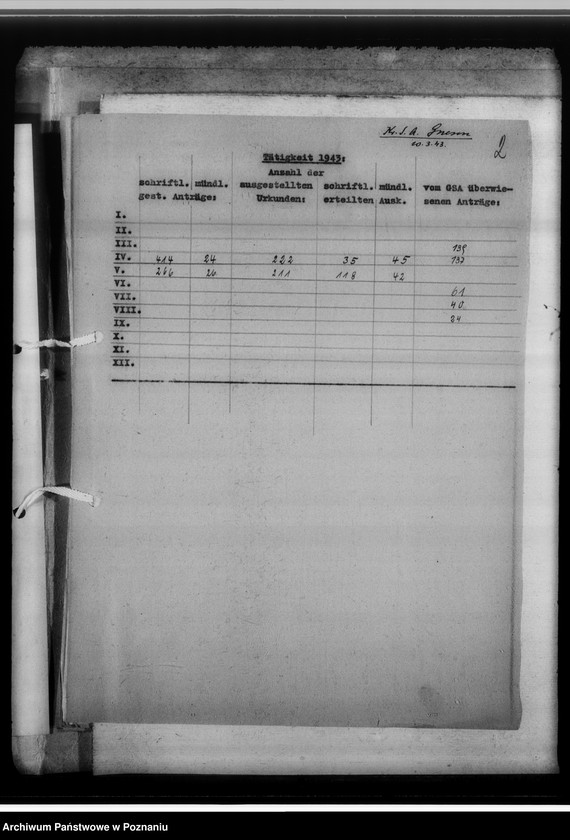 Kr. S. A. Gnesen
10.3.43.
2
Tätigkeit 1943:
Anzahl der
schriftl. mündl. ausgestellten schriftl. mündl. vom GSA überwie-
gest. Anträge: Urkunden: erteilten Ausk. senen Anträge:
I.
II.
III. 139
IV. 414 24 222 35 45 132
V. 266 26 211 118 42
VI.
VII. 61
VIII. 40
IX. 24
X.
XI.
XII.
Archiwum Państwowe w Poznaniu